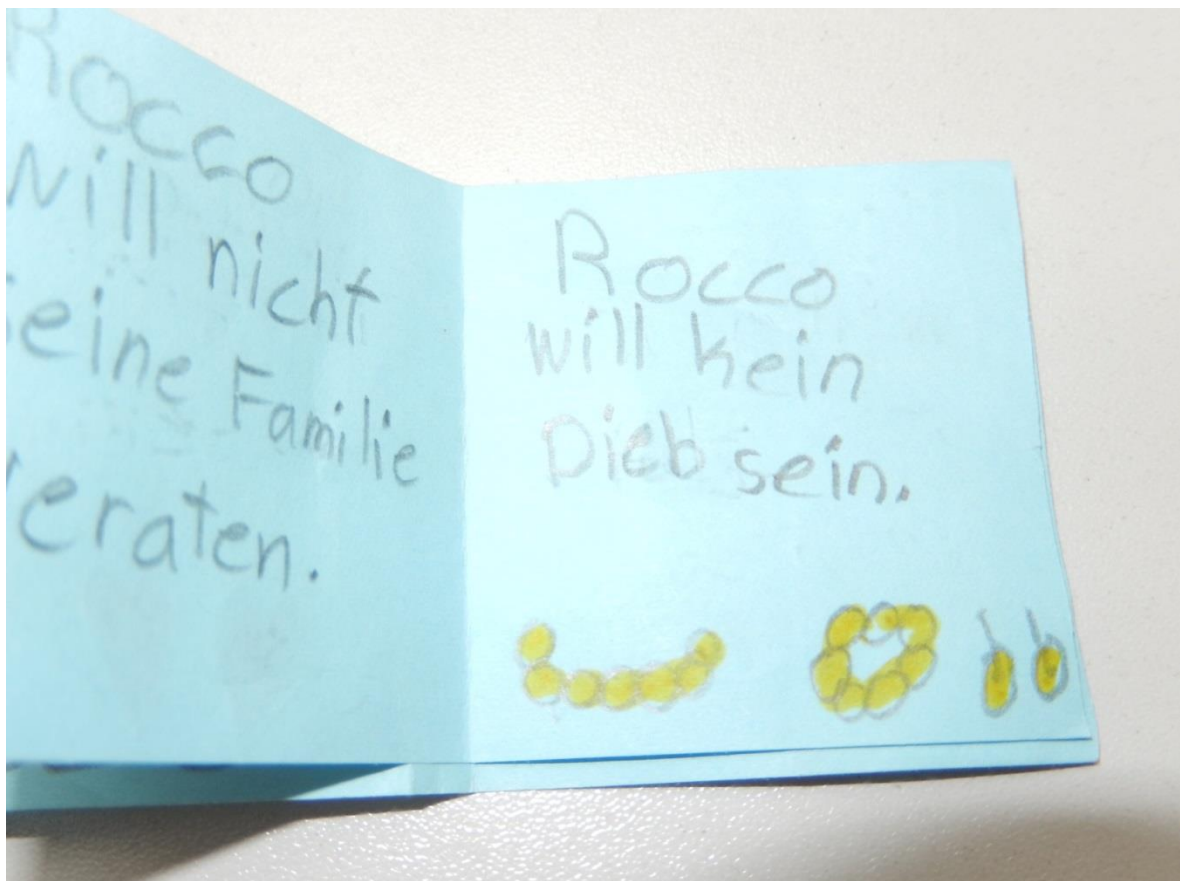 Rocco
will nicht
seine Familie
veraten.
Rocco
will kein
Dieb sein.